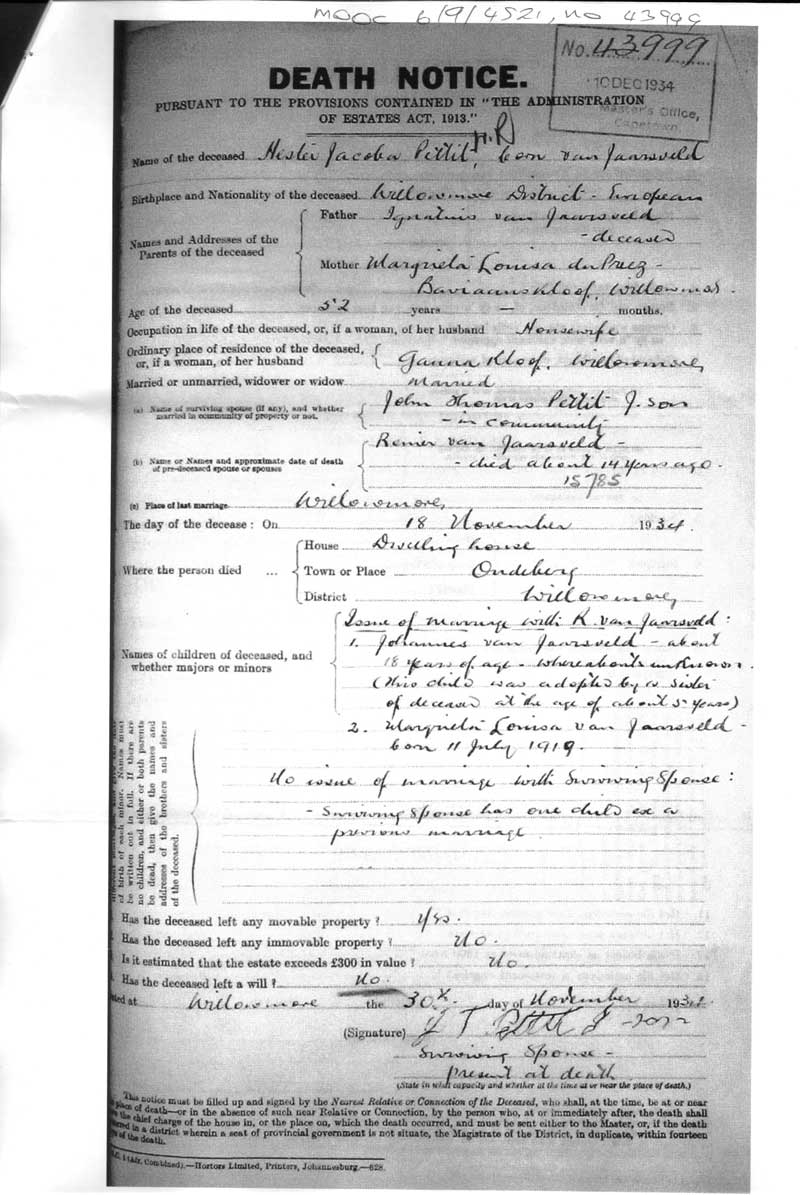 MOOC 6/9/4521, no 43999
No. 43999
10 DEC 1934
Master's Office,
Capetown
DEATH NOTICE.
PURSUANT TO THE PROVISIONS CONTAINED IN "THE ADMINISTRATION
OF ESTATES ACT, 1913."
Name of the deceased Hester Jacoba Pettit, born van Jaarsveld
Birthplace and Nationality of the deceased Willowmore District - European
Names and Addresses of the
Parents of the deceased
Father Ignatius van Jaarsveld
- deceased
Mother Margrieta Louisa du Preez -
Baviaanskloof, Willowmore.
Age of the deceased 52 years — months.
Occupation in life of the deceased, or, if a woman, of her husband Housewife
Ordinary place of residence of the deceased,
or, if a woman, of her husband Ganna Kloof, Willowmore
Married or unmarried, widower or widow Married
(a) Name of surviving spouse (if any), and whether
married in community of property or not.
John Thomas Pettit J. son
- in community
(b) Name or Names and approximate date of death
of pre-deceased spouse or spouses
Renier van Jaarsveld -
- died about 14 years ago.
15785
(c) Place of last marriage Willowmore
The day of the decease: On 18 November 1934
Where the person died ...
House Dwelling house
Town or Place Ondeberg
District Willowmore
Names of children of deceased, and
whether majors or minors
Issue of marriage with R. van Jaarsveld:
1. Johannes van Jaarsveld - about
18 years of age - whereabouts unknown
(This child was adopted by a sister
of deceased at the age of about 5 years)
2. Margrieta Louisa van Jaarsveld -
born 11 July 1919.
of birth of each minor. Names must
be written out in full. If there are
no children, and either or both parents
be dead, then give the names and
addresses of the brothers and sisters
of the deceased.
No issue of marriage with Surviving Spouse:
- Surviving Spouse has one child ex a
previous marriage
Has the deceased left any movable property? Yes.
Has the deceased left any immovable property? No.
Is it estimated that the estate exceeds £300 in value? No.
Has the deceased left a will? No.
at Willowmore the 30th day of November 1934
(Signature) J T Pettit J - son
Surviving Spouse -
present at death
(State in what capacity and whether at the time at or near the place of death.)
This notice must be filled up and signed by the Nearest Relative or Connection of the Deceased, who shall, at the time, be at or near
place of death—or in the absence of such near Relative or Connection, by the person who, at or immediately after, the death shall
the chief charge of the house in, or the place on, which the death occurred, and must be sent either to the Master, or, if the death
in a district wherein a seat of provincial government is not situate, the Magistrate of the District, in duplicate, within fourteen
of the death.
(Afr. Combined).—Hortors Limited, Printers, Johannesburg.—628.